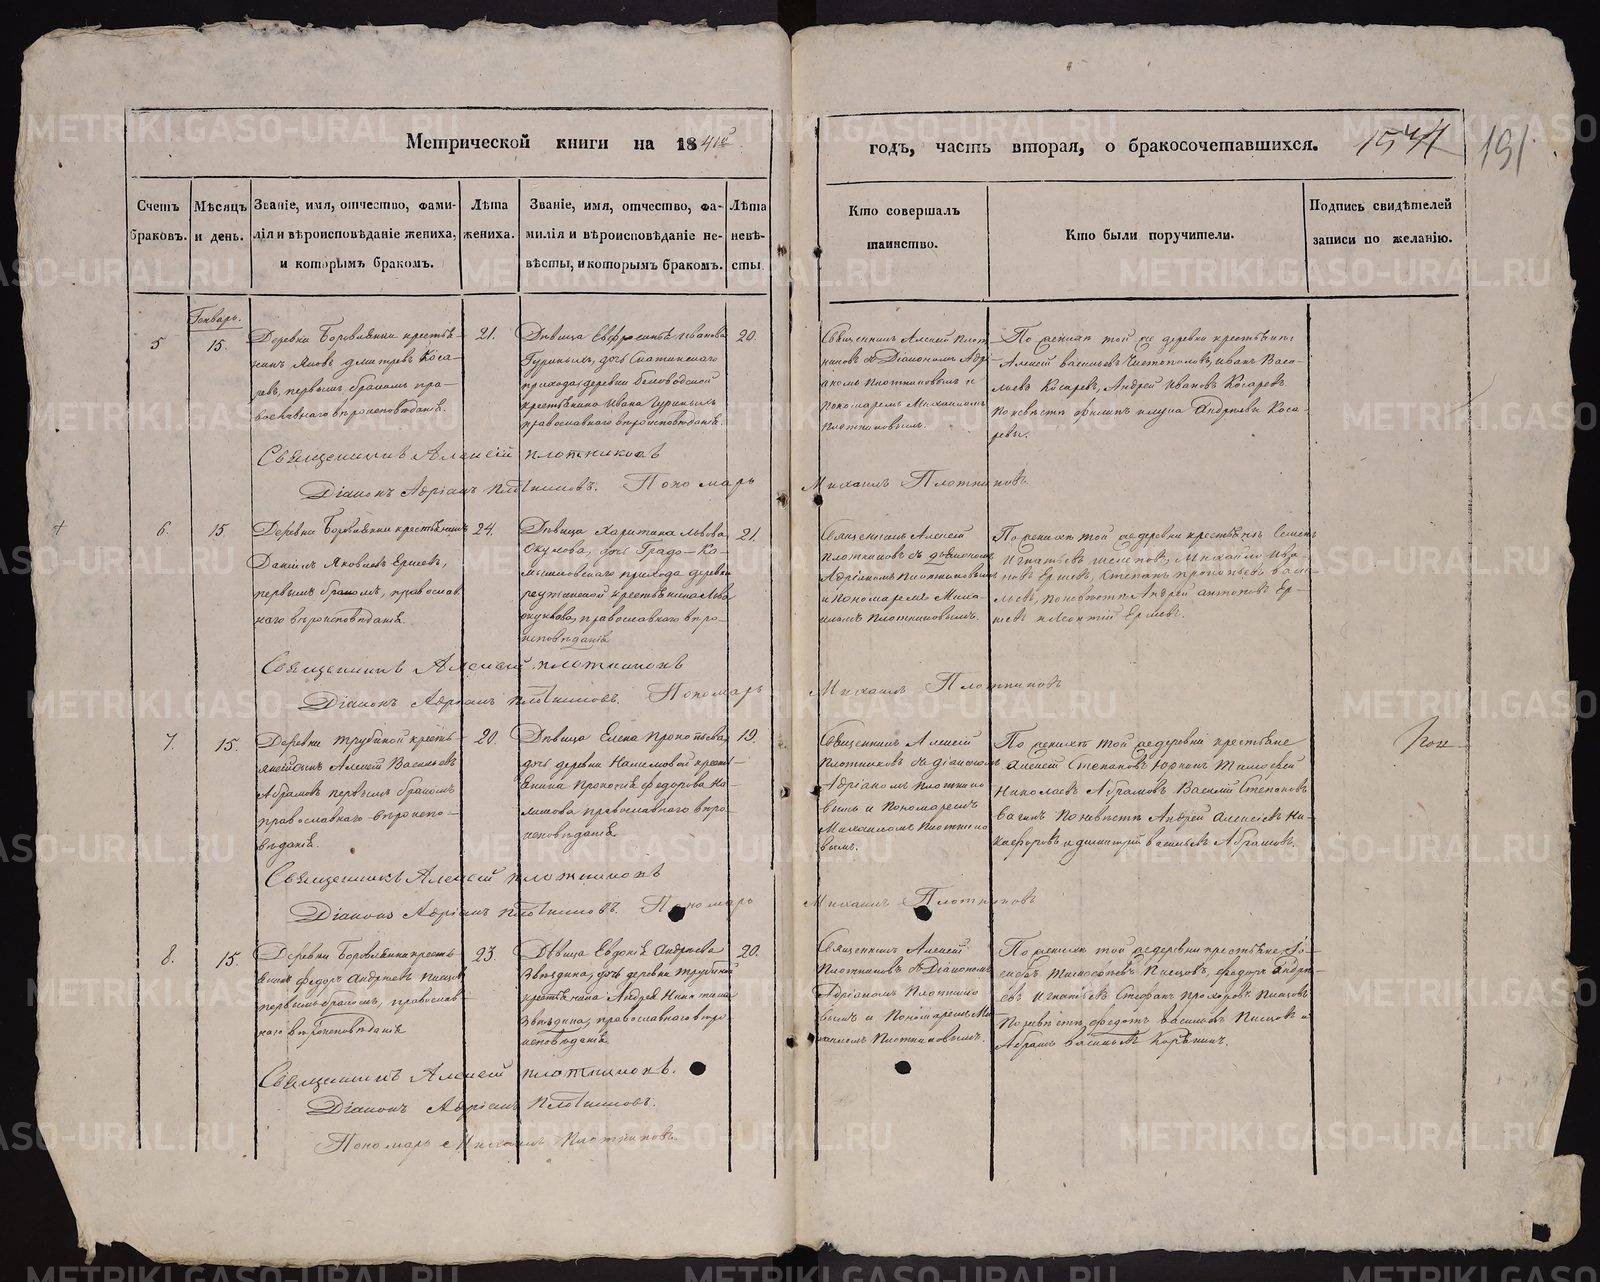 Метрической книги на 1841й годъ, часть вторая, о бракосочетавшихся. 1544 191
Счетъ браковъ.
Мѣсяцъ и день.
Званіе, имя, отчество, фами-
лія и вѣроисповѣданіе жениха,
и которымъ бракомъ.
Лѣта
жениха.
Званіе, имя, отчество, фа-
милія и вѣроисповѣданіе не-
вѣсты, и которымъ бракомъ.
Лѣта
невѣ-
сты
Кто совершалъ
таинство.
Кто были поручители.
Подпись свидѣтелей
записи по желанію.
Генварь.
5
15.
Деревни Боровлянки крестья-
нинъ Яковъ Дмитревъ Коса-
ревъ, первымъ бракомъ пра-
вославнаго вѣроисповѣданія.
21.
Дѣвица Евфросинья Иванова
Гуриныхъ, дочь
прихода, деревни Беловодской
крестьянина Ивана Гуриныхъ
православнаго вѣроисповѣданія.
20.
Священникъ Алексей Плот-
никовъ съ Діакономъ Адрі-
аномъ Плотниковымъ и
пономаремъ Михаиломъ
Плотниковымъ.
По женихѣ той же деревни крестьяне
Алексей Васильевъ Чистополовъ, Иванъ Васи-
льевъ Косаревъ, Андрей Ивановъ Косаревъ
по невѣстѣ Филипъ и Лука Андреевы Коса-
ревы.
Священникъ Алексей Плотниковъ
Діаконъ Адріанъ Плотниковъ. Пономарь Михаилъ Плотниковъ.
6.
15.
Деревни Боровлянки крестьянинъ
Даниилъ Яковлевъ Ершевъ,
первымъ бракомъ, православ.
наго вѣроисповѣданія.
24.
Дѣвица Харитина Львова
Окулова, дочь Градо-Ка-
мышловскаго прихода деревни
Реутинской крестьянина Льва
Окулова, православнаго вѣро-
исповѣданія
21.
Священникъ Алексей
Плотниковъ съ дьякономъ
Адріаномъ Плотниковымъ
и Пономаремъ Миха-
иломъ Плотниковымъ.
По женихѣ той же деревни крестьяне Семенъ
Игнатьевъ Михайло Ива-
новъ Ершевъ, Степанъ Прокопьевъ Васи-
льевъ, по невѣстѣ Андрей Антоновъ Ер-
шевъ и Леонтій Ершевъ.
Священникъ Алексей Плотниковъ
Діаконъ Адріанъ Плотниковъ. Пономарь Михаилъ Плотниковъ
7.
15.
Деревни Трубиной кресть-
янскій сынъ Алексей Васильевъ
Абрамовъ первымъ бракомъ
православнаго вѣроиспо-
вѣданія.
20.
Дѣвица Елена Прокопьева,
дочь деревни Налимовой кресть-
янина Прокопія Федорова На-
лимова православнаго вѣро-
исповѣданія
19.
Священникъ Алексей
Плотниковъ съ діакономъ
Адріаномъ Плотнико
вымъ и Пономаремъ
Михаиломъ Плотнико
вымъ.
По женихѣ той же деревни крестьяне
Алексей Степановъ Тимофей
Николаевъ Абрамовъ Василій Степановъ
Вагинъ по невѣстѣ Андрей Алексеевъ Ни-
кифоровъ и Дмитрій Васильевъ Абрамовъ.
Священникъ Алексей Плотниковъ
Діаконъ Адріанъ Плотниковъ. Пономарь Михаилъ Плотниковъ
8.
15.
Деревни Боровлянки кресть-
янинъ Федоръ Андреевъ Писцовъ
первымъ бракомъ, православ-
наго вѣроисповѣданія
23.
Дѣвица Евдокія Андреева
Звѣздина, дочь деревни Трубиной
крестьянина Андрея Никитина
Звѣздина, православнаго вѣро
исповѣданія.
20.
Священникъ Алексей
Плотниковъ съ Діакономъ
Адріаномъ Плотнико
вымъ и Пономаремъ Ми
хаиломъ Плотниковымъ.
По женихѣ той же деревни крестьяне
Писцовъ, Федоръ Андре-
евъ Игнатьевъ Стефанъ Прохоровъ Писцовъ
По невѣстѣ Федотъ Васильевъ Писцовъ и
Абрамъ Васильевъ
Священникъ Алексей Плотниковъ.
Діаконъ Адріанъ Плотниковъ.
Пономарь Михаилъ Плотниковъ.
METRIKI.GASO-URAL.RU